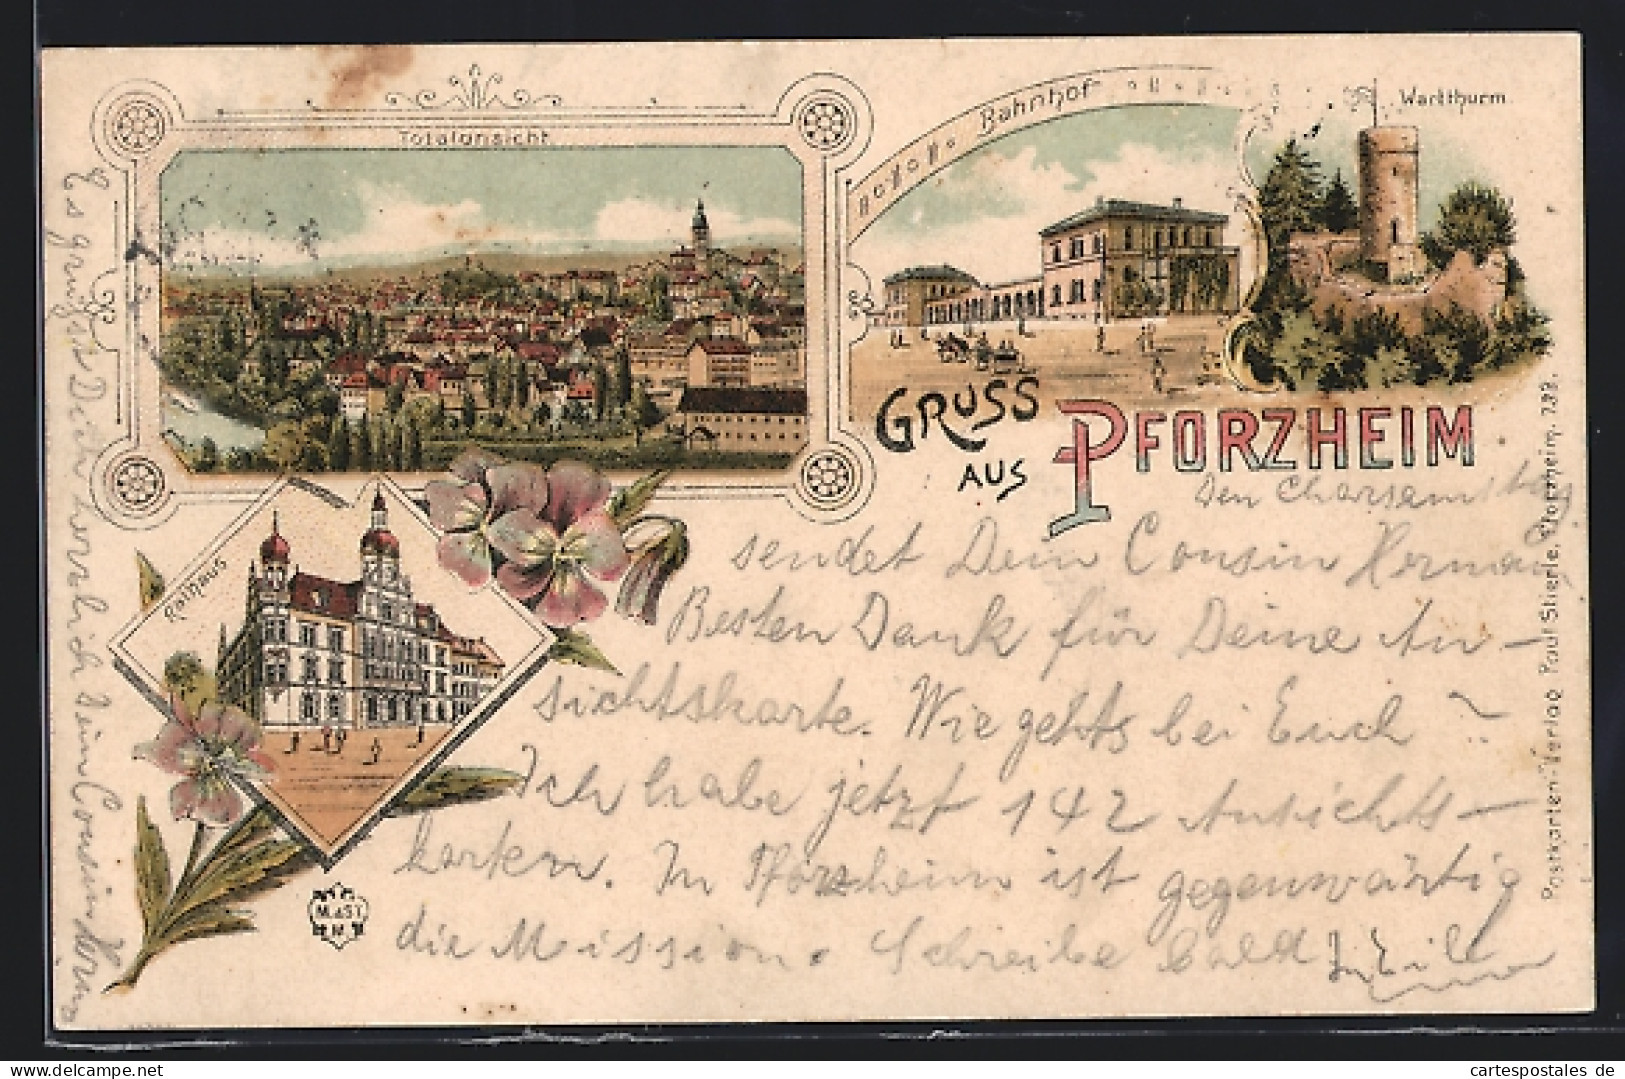 Totalansicht.
Bahnhof
Wartthurm.
GRUSS
AUS
PFORZHEIM
Rathaus
M. & ST.
N.
den Charsamstag
sendet Dein Cousin Herman
Besten Dank für Deine An-
sichtskarte. Wie gehts bei Euch ?
Ich habe jetzt 142 Ansichts-
karten. In Pforzheim ist gegenwärtig
die Mission. Schreibe bald In Eile
Es grüßt Dich herzlich Dein Cousin Herman
Postkarten-Verlag Paul Stierle, Pforzheim. 739.
cartespostales de